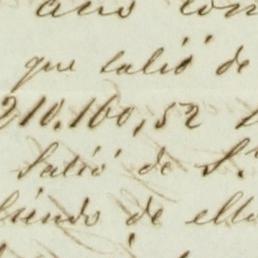 año con
que salió de
210.160,52
Salió de S.
siendo de ello